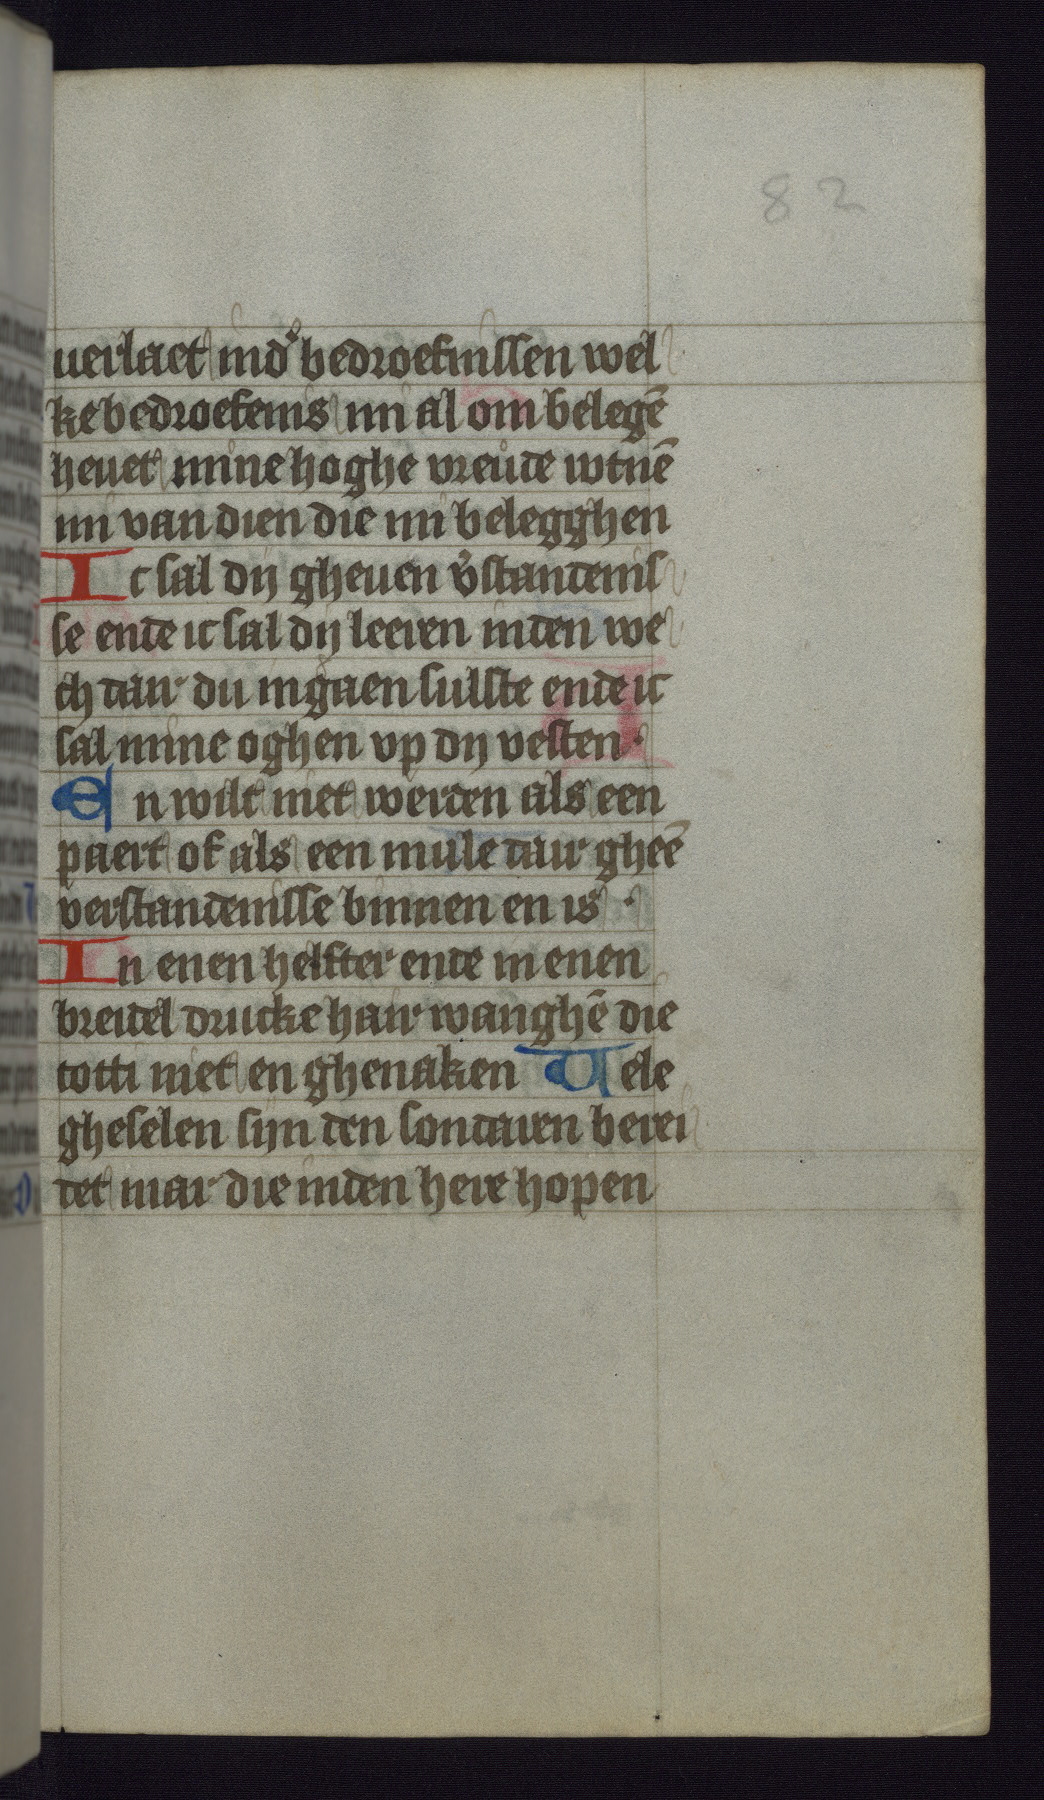 82
uerlaet ind' bedroefnissen wel
ke bedroefenis mi al om belegē
heuet mine hoghe vreude wtnē
mi van dien die mi belegghen
Ic sal dij gheuen v'standenis
se ende ic sal dij leeren inden we
ch dair du ingaen sulste ende ic
sal mine oghen vp dij vesten·
En wilt niet werden als een
paert of als een mule dair gheē
verstandenisse binnen en is ·
In enen helfter ende in enen
breidel drucke hair wanghē die
totti niet en ghenaken Uele
gheselen sijn den sondaren berei
det mar die inden here hopen